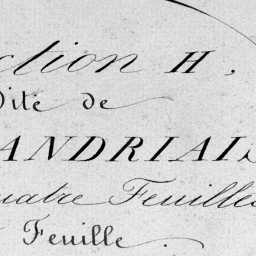 ction H,
Dite de
ANDRIAIS
uatre Feuilles
Feuille.